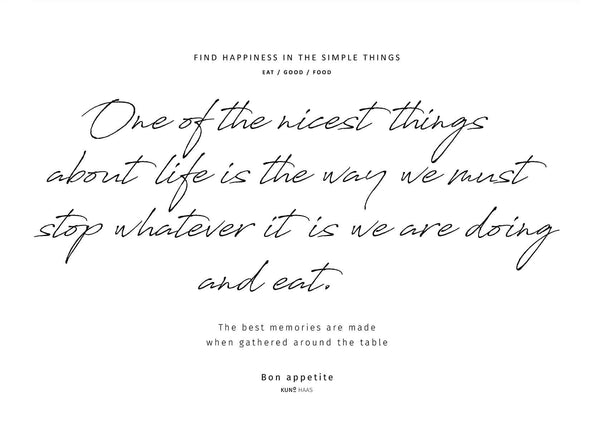 FIND HAPPINESS IN THE SIMPLE THINGS
EAT / GOOD / FOOD
One of the nicest things
about life is the way we must
stop whatever it is we are doing
and eat.
The best memories are made
when gathered around the table
Bon appetite
KUNO HAAS